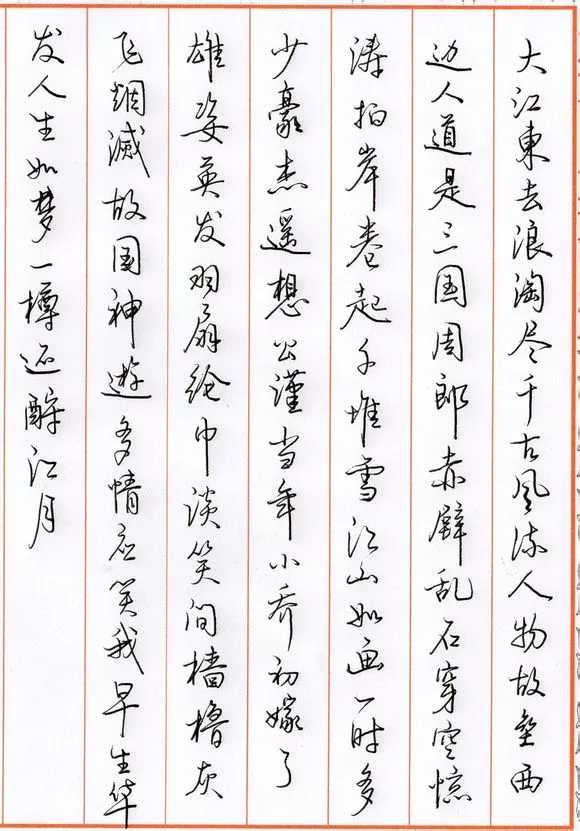 大江東去浪淘尽千古风流人物故垒西
边人道是三国周郎赤壁乱石穿空惊
涛拍岸卷起千堆雪江山如画一时多
少豪杰遥想公瑾当年小乔初嫁了
雄姿英发羽扇纶巾谈笑间樯橹灰
飞烟滅故国神遊多情应笑我早生华
发人生如梦一樽还酹江月